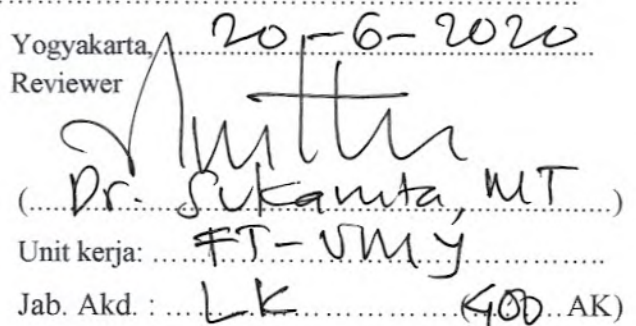 Yogyakarta, 20-6-2020
Reviewer
(Dr. Sukamta, MT)
Unit kerja: FT-UMY
Jab. Akd. : LK (400 AK)